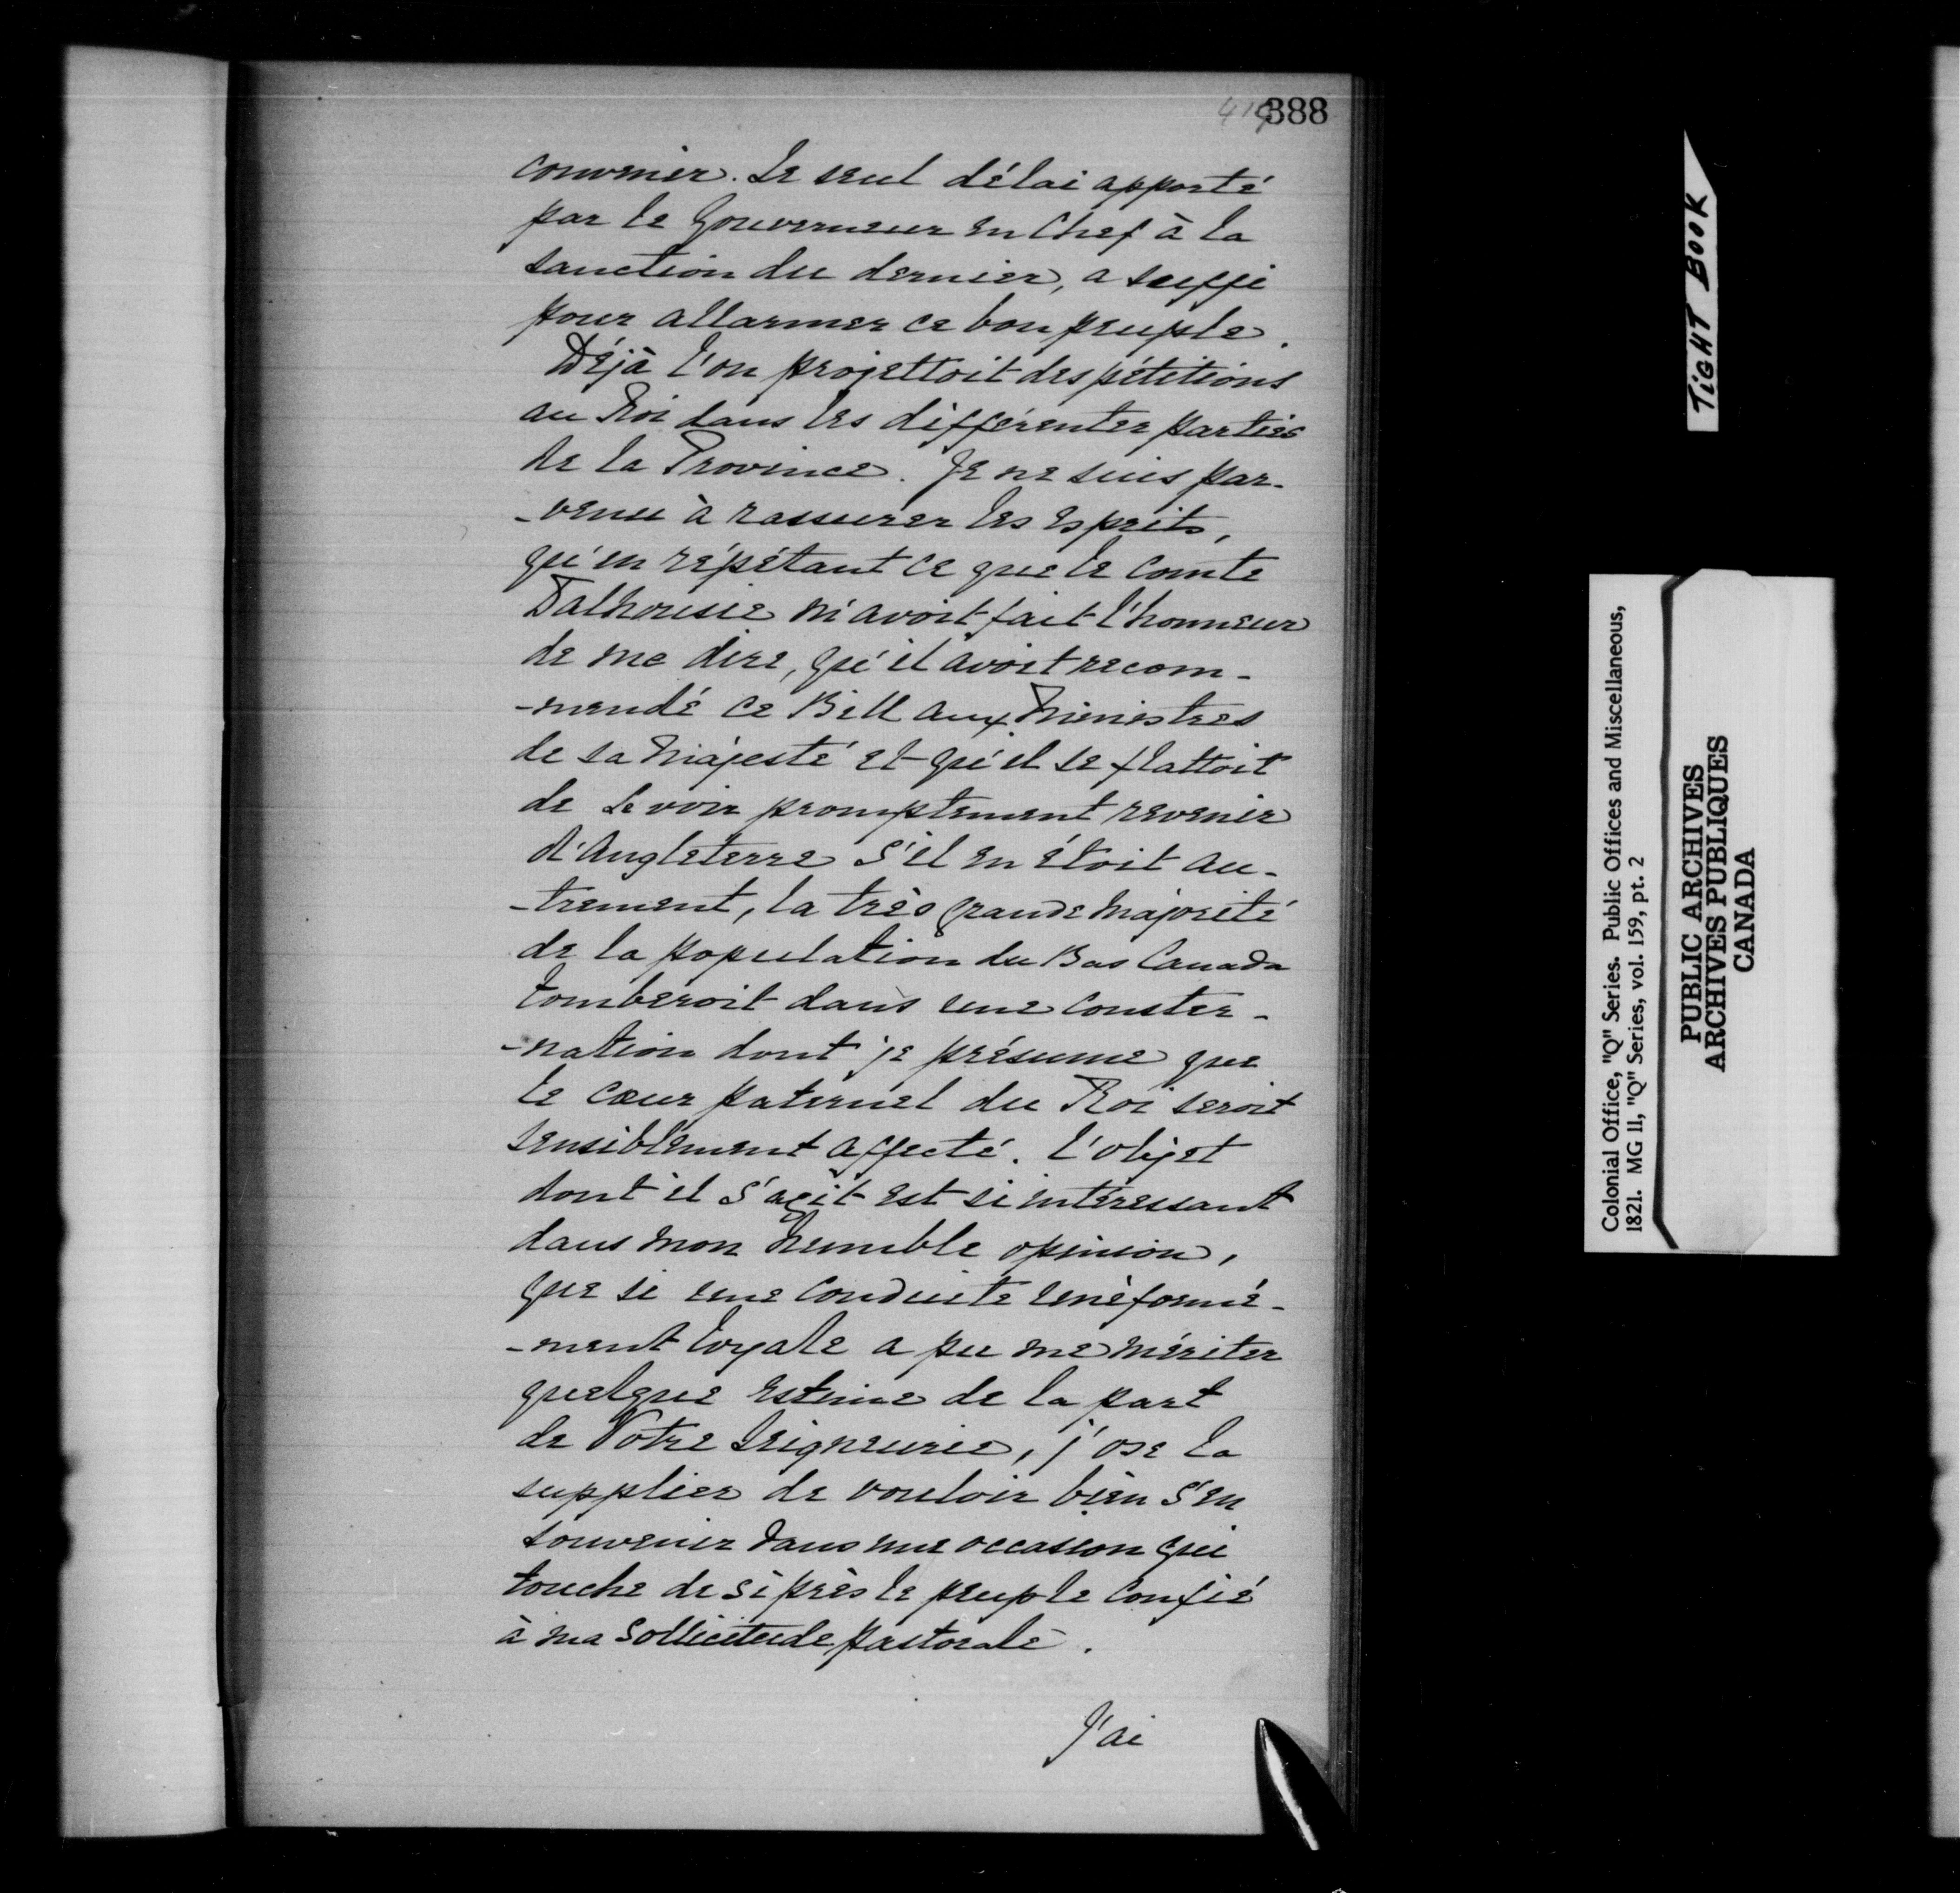 388
convenir. Le seul délai apporté
par le Gouverneur en Chef à la
sanction du dernier, a suffi
pour allarmer ce bon peuple.
Déjà l'on projettoit des pétitions
au Roi dans les différentes parties
de la Province. Je ne suis par-
-venu à rassurer les esprits,
qu'en répétant ce que le Comte
Dalhousie m'avoit fait l'honneur
de me dire, qu'il avoit recom-
-mendé ce Bill aux Ministres
de sa Majesté et qu'il se flattoit
de le voir promptement revenir
d'Angleterre S'il en étoit au-
-trement, la très grande majorité
de la population du Bas Canada
tomberoit dans une conster-
-nation dont je présume que
le cœur paternel du Roi seroit
sensiblement affecté. L'objet
dont il s'agit est si intéressant
dans mon humble opinion,
que si une conduite uniformé-
-ment loyale a pu me mériter
quelque estime de la part
de Votre Seigneurie, j'ose la
supplier de vouloir bien s'en
souvenir dans une occasion qui
touche de si près le peuple confié
à ma sollicitude pastorale.
J'ai
TIGHT BOOK
Colonial Office, "Q" Series. Public Offices and Miscellaneous,
1821. MG 11, "Q" Series, vol. 159, pt. 2
PUBLIC ARCHIVES
ARCHIVES PUBLIQUES
CANADA